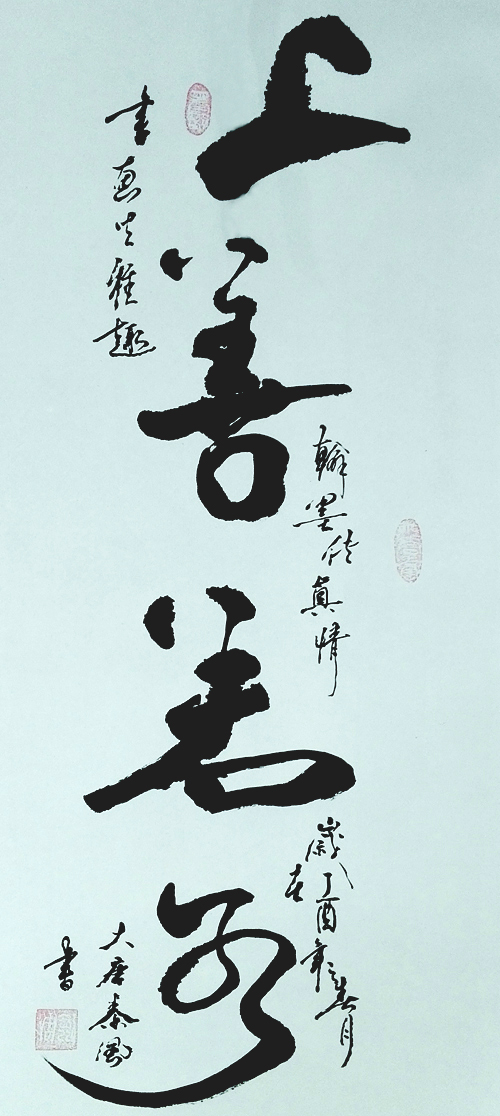 上善若水
翰墨传真情
書画生雅趣
歲在丁酉年之春月
大唐秦風
書